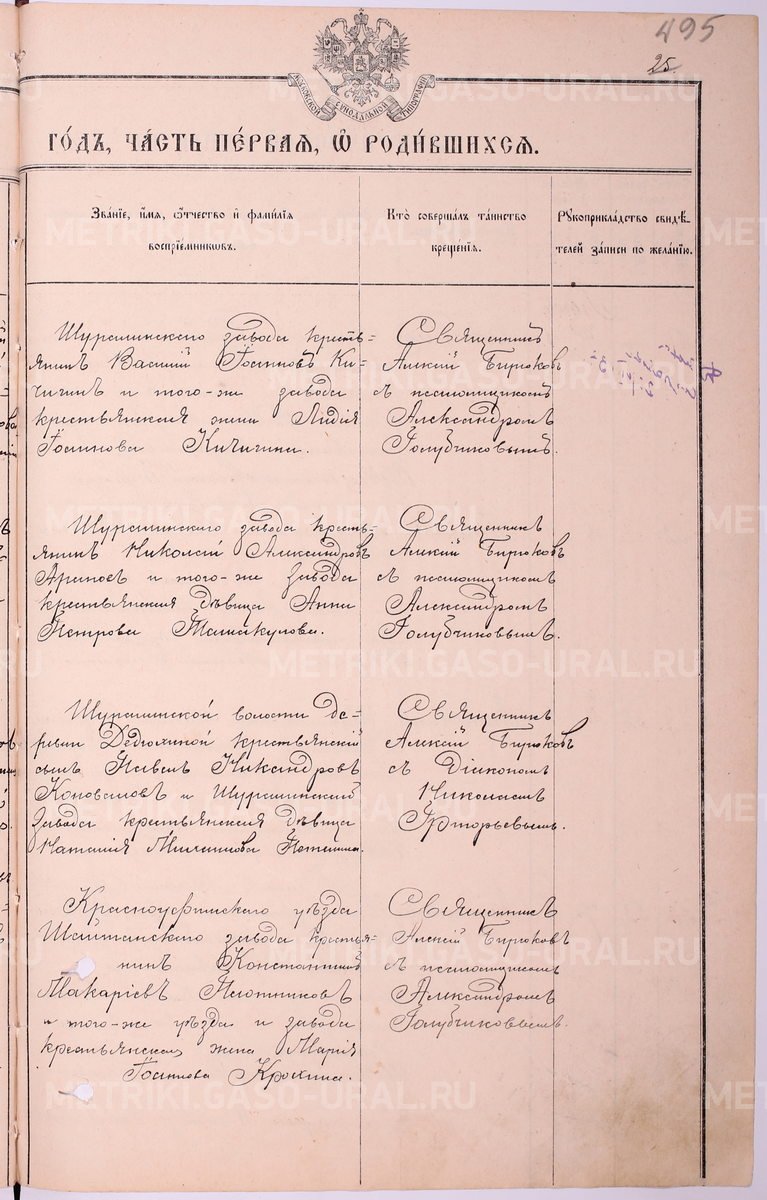 495
25.
МОСКОВСКОЙ СѴНОДАЛЬНОЙ ТИПОГРАФІИ
ГО́ДЪ, ЧА́СТЬ ПЕ́РВАѦ, Ѡ҆ РОДИ́ВШИХСѦ.
Зва́нїе, и҆́мѧ, ѻ҆́тчество и҆ фами́лїѧ
воспрїе́мникѡвъ.
Кто̀ соверша́лъ та́инство
креще́нїѧ.
Рꙋкоприкла́дство свидѣ́-
телей за́писи по жела́нїю.
Шуралинскаго завода кресть-
янинъ Василій Іоанновъ Ки-
чигинъ и того-же завода
крестьянская жена Лидія
Іоаннова Кичигина.
Священникъ
Алексій Бирюковъ
съ псаломщикомъ
Александромъ
Голубчиковымъ.
Шуралинскаго завода кресть-
янинъ Николай Александровъ
Араповъ и того-же завода
крестьянская дѣвица Анна
Петрова
Священникъ
Алексій Бирюковъ
съ псаломщикомъ
Александромъ
Голубчиковымъ.
Шуралинской волости де-
ревни Дедюхиной крестьянскій
сынъ Павелъ Никандровъ
Коноваловъ и Шуралинскаго
завода крестьянская дѣвица
Наталія
Священникъ
Алексій Бирюковъ
съ Діакономъ
Николаемъ
Григорьевымъ.
Красноуфимскаго уѣзда
Шайтанскаго завода кресть-
янинъ Константинъ
Макаріевъ Плотниковъ
и того-же уѣзда и завода
крестьянская жена Марія
Іоаннова Крохина.
Священникъ
Алексій Бирюковъ
съ псаломщикомъ
Александромъ
Голубчиковымъ.
METRIKI.GASO-URAL.RU